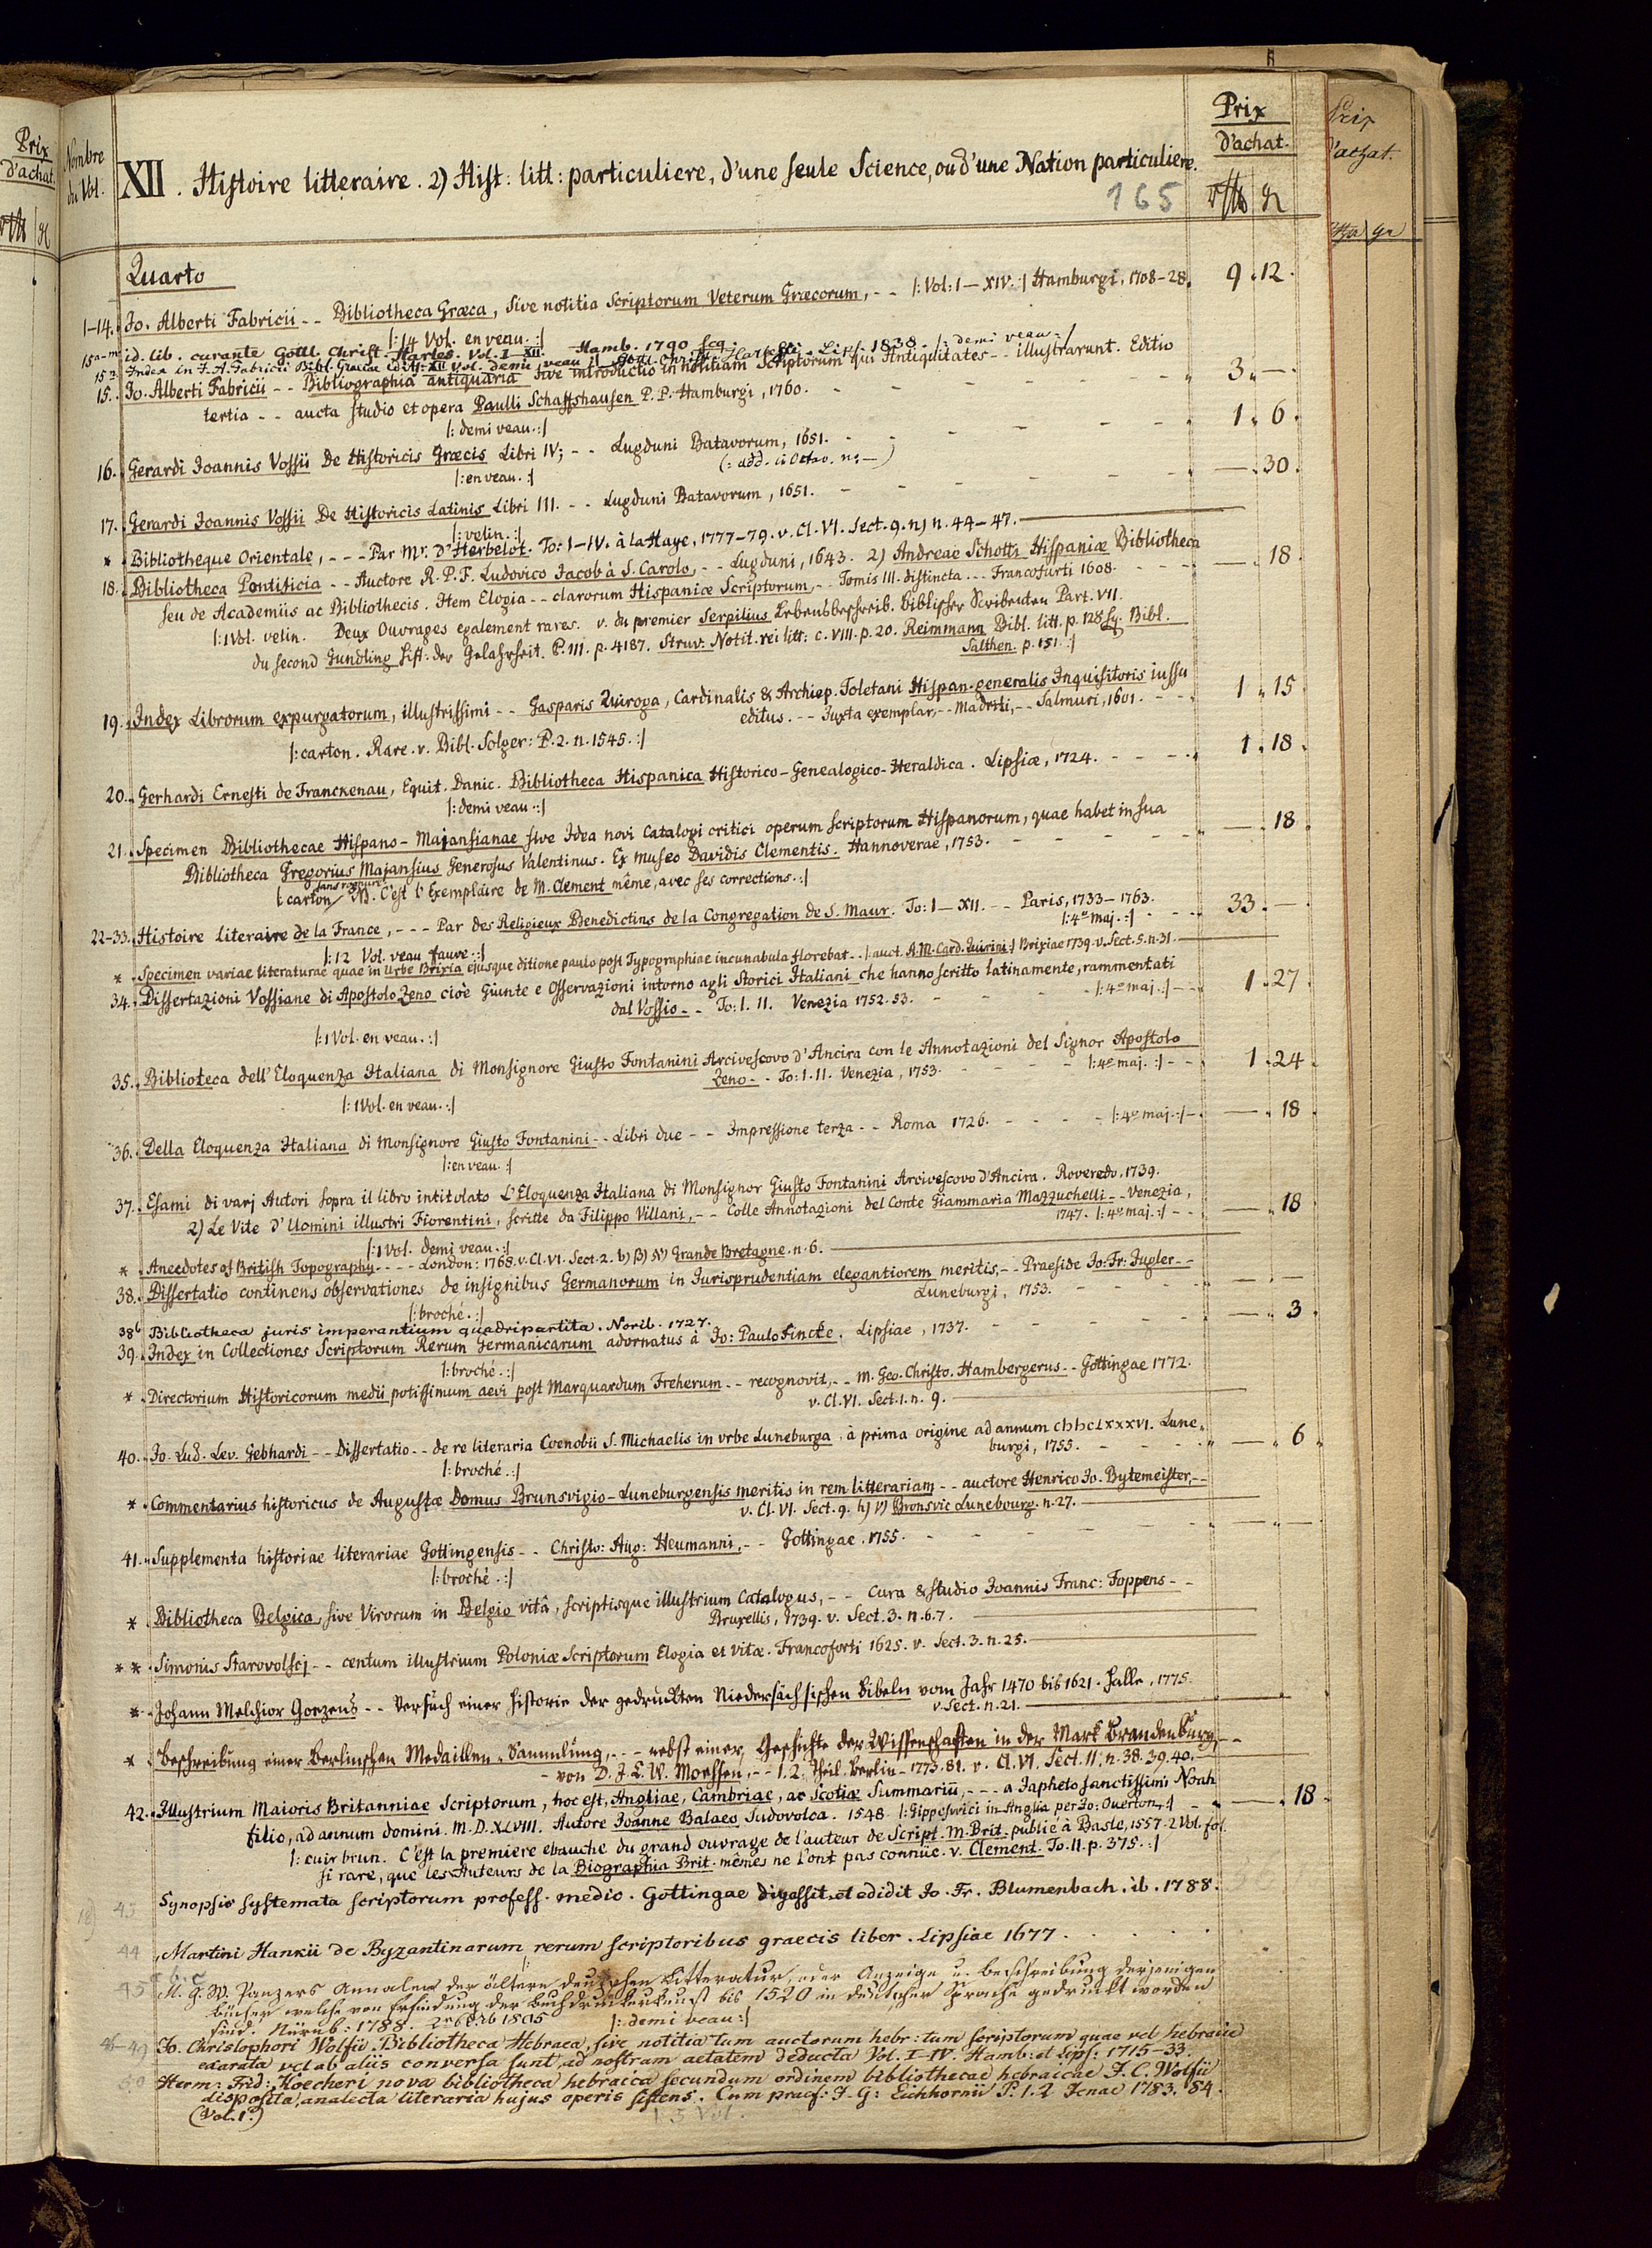 Prix
d'achat.
Nombre
du Vol.
XII. Histoire litteraire. 2) Hist: litt: particuliere, d'une seule Science, ou d'une Nation particuliere.
165
Prix
d'achat.
Quarto
1-14. Jo. Alberti Fabricii -- Bibliotheca Græca, sive notitia Scriptorum Veterum Græcorum, -- |: Vol: I-XIV. :| Hamburgi, 1708-28. 9. 12.
|: 14 Vol. en veau. :|
15a-m id. lib. curante Gottl. Christ. Harles. Vol. I-XII. Hamb. 1790 seq.
15n Index in J. A. Fabricii Bibl. Graecae Lips. 1838. |: demi veau :|
15. Jo. Alberti Fabricii -- Bibliographia antiquaria sive introductio in notitiam Scriptorum qui Antiquitates -- illustrarunt. Editio
tertia -- aucta studio et opera Paulli Schaffshausen P. P. Hamburgi, 1760. 3. —.
|: demi veau. :|
16. Gerardi Joannis Vossii De Historicis Græcis Libri IV; -- Lugduni Batavorum, 1651. 1. 6.
|: en veau. :| (: add. in Octav. n: —)
17. Gerardi Joannis Vossii De Historicis Latinis Libri III. -- Lugduni Batavorum, 1651. —. 30.
|: velin. :|
* Bibliotheque Orientale, --- Par Mr. D'Herbelot. To: I-IV. à la Haye, 1777-79. v. Cl. VI. Sect. 9. n) n. 44-47.
18. Bibliotheca Pontificia -- Auctore R. P. F. Ludovico Jacob à S. Carolo, -- Lugduni, 1643. 2) Andreae Schotti Hispaniæ Bibliotheca
seu de Academiis ac Bibliothecis. Item Elogia -- clarorum Hispaniæ Scriptorum, -- Tomis III. distincta --- Francofurti 1608. —. 18.
|: 1 Vol. velin. Deux Ouvrages egalement rares. v. du premier Serpilius Lebensbeschreib. Biblischer Scribenten Part. VII.
du second Gundling Hist: der Gelahrheit. P. III. p. 4187. Struv: Notit. rei litt: c. VIII. p. 20. Reimmann Bibl. litt. p. 128 sq. Bibl.
Salthen. p. 151. :|
19. Index Librorum expurgatorum, illustrissimi -- Gasparis Quiroga, Cardinalis & Archiep. Toletani Hispan. generalis Inquisitoris iussu
editus. -- Juxta exemplar, -- Madriti, -- Salmuri, 1601. 1. 15.
|: carton. Rare. v. Bibl. Solger: P. 2. n. 1545. :|
20. Gerhardi Ernesti de Franckenau, Equit. Danic. Bibliotheca Hispanica Historico-Genealogico-Heraldica. Lipsiæ, 1724. 1. 18.
|: demi veau. :|
21. Specimen Bibliothecae Hispano-Majansianae sive Idea novi Catalogi critici operum scriptorum Hispanorum, quae habet in sua
Bibliotheca Gregorius Majansius Generosus Valentinus. Ex museo Davidis Clementis. Hannoverae, 1753. —. 18.
|: carton NB. C'est l'Exemplaire de M. Clement même, avec ses corrections. :|
22-33. Histoire literaire de la France, --- Par des Religieux Benedictins de la Congregation de S. Maur. To: I-XII. -- Paris, 1733-1763. 33. —
|: 12 Vol. veau fauve. :| |: 4to maj. :|
* Specimen variae literaturae quae in Urbe Brixia ejusque ditione paulo post Typographiae incunabula florebat -- |: auct. A. M. Card. Quirini :| Brixiae 1739. v. Sect. 5. n. 31.
34. Dissertazioni Vossiane di Apostolo Zeno cioè Giunte e Osservazioni intorno agli Storici Italiani che hanno scritto latinamente, rammentati
dal Vossio -- To: I. II. Venezia 1752. 53. |: 4to maj. :| 1. 27.
|: 1 Vol. en veau. :|
35. Biblioteca dell'Eloquenza Italiana di Monsignore Giusto Fontanini Arcivescovo d'Ancira con le Annotazioni del Signor Apostolo
Zeno -- To: I. II. Venezia, 1753. |: 4to maj. :| 1. 24.
|: 1 Vol. en veau. :|
36. Della Eloquenza Italiana di Monsignore Giusto Fontanini -- Libri due -- Impressione terza -- Roma 1726. |: 4to maj. :| —. 18.
|: en veau. :|
37. Esami di varj Autori sopra il libro intitolato L'Eloquenza Italiana di Monsignor Giusto Fontanini Arcivescovo d'Ancira. Roveredo. 1739.
2) Le Vite d'Uomini illustri Fiorentini, scritte da Filippo Villani, -- Colle Annotazioni del Conte Giammaria Mazzuchelli -- Venezia,
1747. |: 4to maj. :| —. 18
|: 1 Vol. demi veau. :|
* Anecdotes of British Topography ---- London: 1768. v. Cl. VI. Sect. 2. b) β) Grande Bretagne. n. 6.
38. Dissertatio continens observationes de insignibus Germanorum in Jurisprudentiam elegantiorem meritis, -- Praeside Jo: Fr: Jugler --
Luneburgi, 1753.
|: broché. :|
38b Bibliotheca juris imperantium quadripartita. Norib. 1727.
39. Index in Collectiones Scriptorum Rerum Germanicarum adornatus à Jo: Paulo Fincke. Lipsiae, 1737. —. 3.
|: broché. :|
* Directorium Historicorum medii potissimum aevi post Marquardum Freherum -- recognovit, -- M. Geo. Christo. Hambergerus -- Gottingae 1772.
v. Cl. VI. Sect. 1. n. 9.
40. Jo. Lud. Lev. Gebhardi -- Dissertatio -- de re literaria Coenobii S. Michaelis in urbe Luneburga, à prima origine ad annum cIɔIɔcLXXXVI. Lune-
burgi, 1755. —. 6.
|: broché. :|
* Commentarius historicus de Augustæ Domus Brunsvigio-Luneburgensis meritis in rem litterariam -- auctore Henrico Jo. Bytemeister, --
v. Cl. VI. Sect. 9. h) ν) Bronsvic Lunebourg. n. 27.
41. Supplementa historiae literariae Gottingensis -- Christo: Aug: Heumanni, -- Gottingae. 1755.
|: broché. :|
* Bibliotheca Belgica, sive Virorum in Belgio vitâ, scriptisque illustrium Catalogus, -- Cura & studio Joannis Franc: Foppens --
Bruxellis, 1739. v. Sect. 3. n. 6. 7.
** Simonis Starovolscj -- centum illustrium Poloniæ Scriptorum Elogia et vitæ. Francoforti 1625. v. Sect. 3. n. 25.
* Johann Melchior Goezens -- Versuch einer Historie der gedruckten Niedersächsischen Bibeln vom Jahr 1470 bis 1621. Halle, 1775.
v. Sect. n. 21.
* Beschreibung einer Berlinschen Medaillen-Sammlung, --- nebst einer Geschichte der Wissenschaften in der Mark Brandenburg, --
- von D. J. C. W. Moehsen, -- 1. 2. Theil. Berlin - 1773. 81. v. Cl. VI. Sect. 11. n. 38. 39. 40.
42. Illustrium Maioris Britanniae Scriptorum, hoc est, Angliae, Cambriae, ac Scotiæ Summariū, --- a Japheto sanctissimi Noah
filio, ad annum domini. M. D. XLVIII. Autore Joanne Balaeo Sudovolca. 1548. |: Gippeswici in Anglia per Jo: Overton. :| —. 18.
|: cuir brun. C'est la premiere ebauche du grand ouvrage de l'auteur de Script. M. Brit. publié à Basle, 1557. 2 Vol. fol.
si rare, que les Auteurs de la Biographia Brit. mêmes ne l'ont pas connüe. v. Clement. To. II. p. 375. :|
43 Synopsis systemata scriptorum profess. medic. Gottingae digessit et edidit Jo. Fr. Blumenbach. ib. 1788.
44 Martini Hankii de Byzantinarum rerum scriptoribus graecis liber. Lipsiae 1677.
45 a. b. c M. G. W. Panzers Annalen der ältern deutschen Litteratur, oder Anzeige u. Beschreibung derjenigen
Bücher welche von Erfindung der Buchdruckerkunst bis 1520 in deutscher Sprache gedruckt worden
sind. Nürnb: 1788. 1805 |: demi veau :|
46-49 Jo. Christophori Wolfii Bibliotheca Hebraea, sive notitia tum auctorum hebr: tum scriptorum quae vel hebraice
exarata vel ab aliis conversa sunt, ad nostram aetatem deducta Vol. I-IV. Hamb: et Lips: 1715-33.
50 Herm: Frid: Koecheri nova bibliotheca hebraica secundum ordinem bibliothecae hebraicae J. C. Wolfii
disposita, analecta literaria hujus operis sistens. Cum praef: J. G: Eichhornii P. 1. 2 Jenae 1783. 84.
(Vol. 1.)
5 Vol.